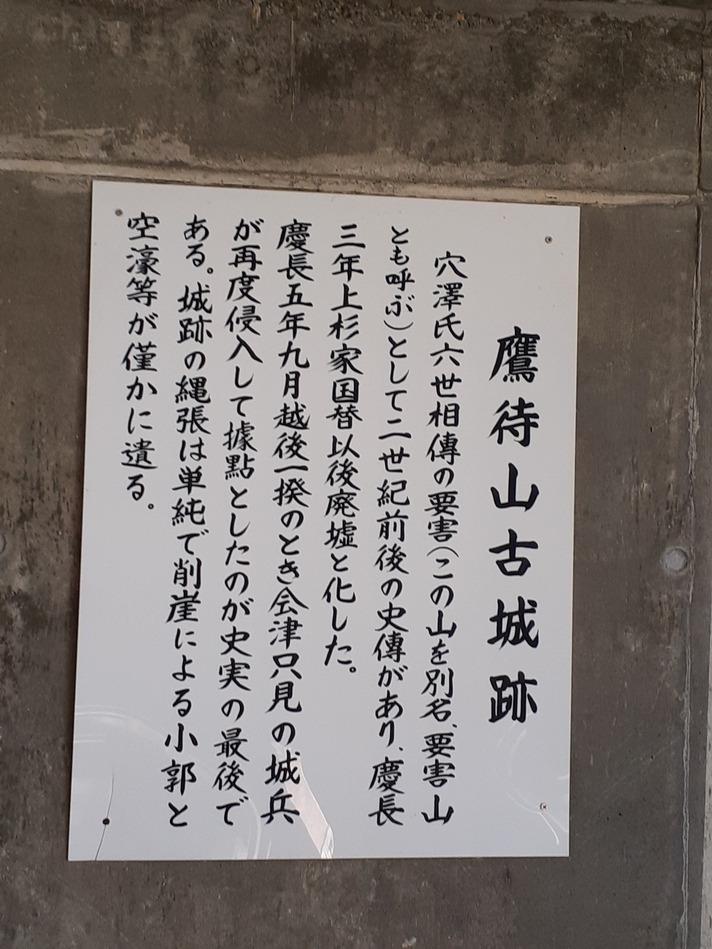 鷹待山古城跡
穴澤氏六世相傳の要害（この山を別名、要害山
とも呼ぶ）として二世紀前後の史傳があり、慶長
三年上杉家国替以後廃墟と化した。
慶長五年九月越後一揆のとき会津只見の城兵
が再度侵入して據點としたのが史実の最後で
ある。城跡の縄張は単純で削崖による小郭と
空濠等が僅かに遺る。